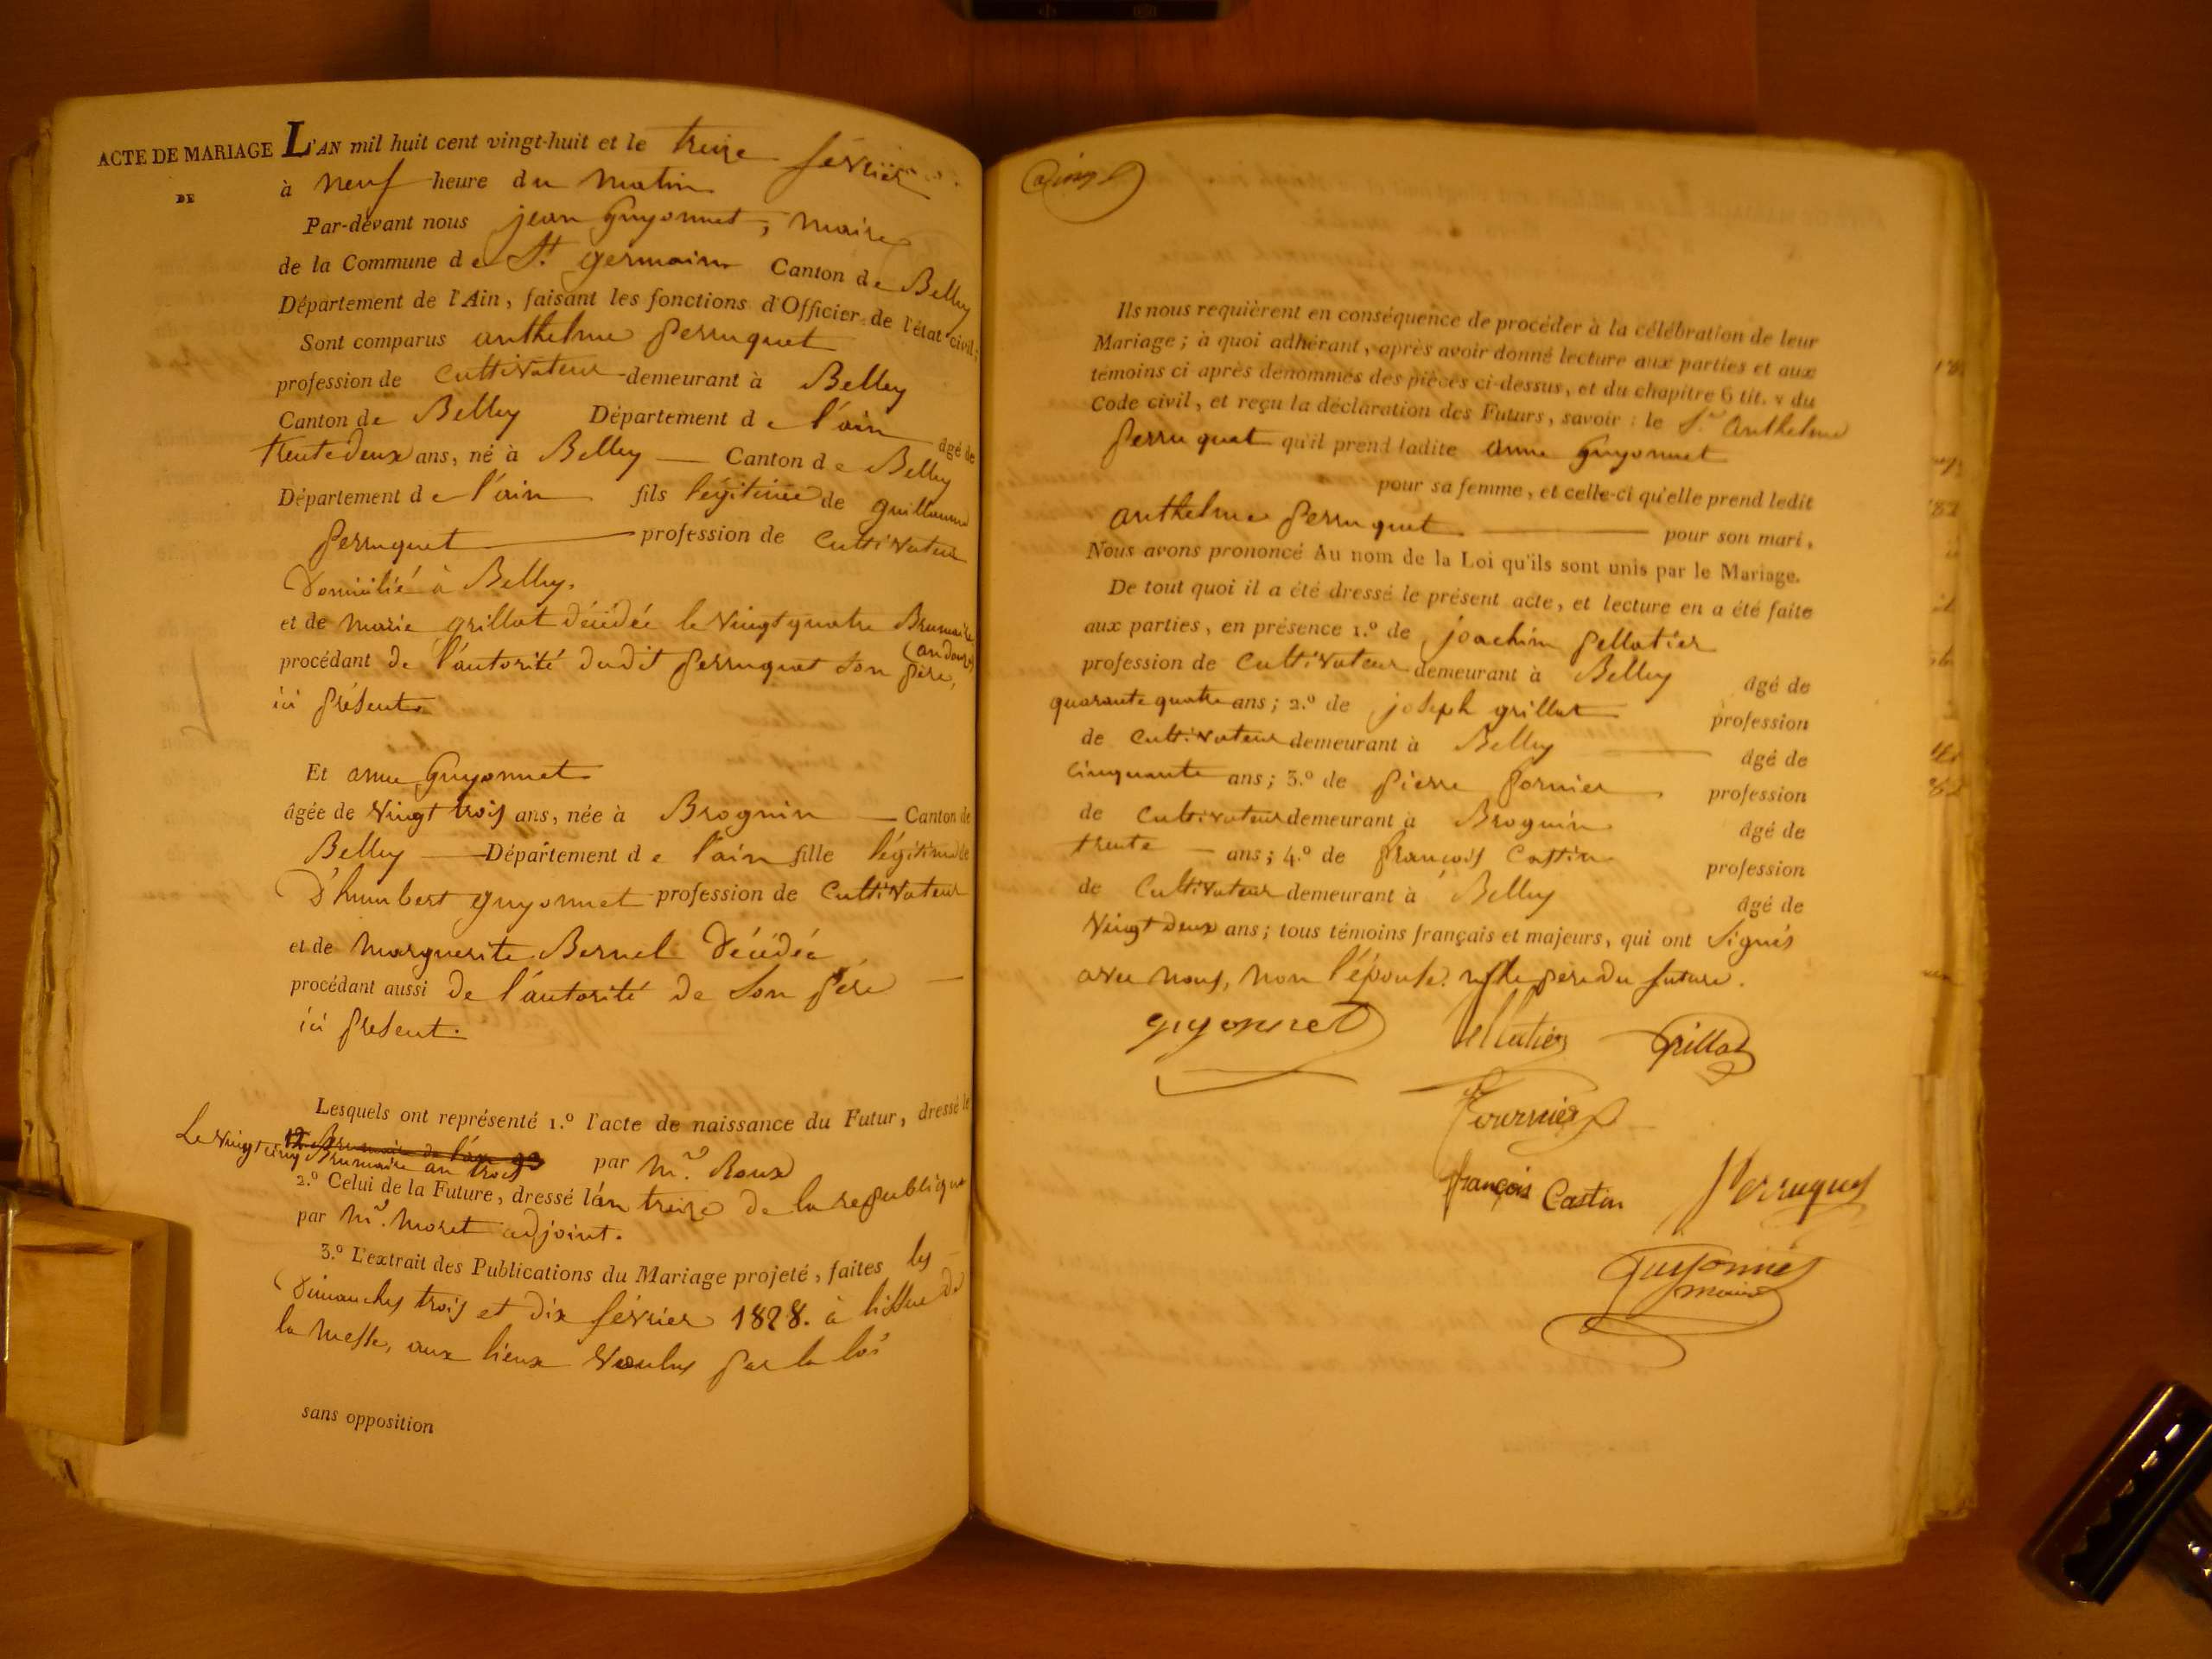 ACTE DE MARIAGE
DE
L'AN mil huit cent vingt-huit et le treize février
à neuf heure du matin
Par-devant nous jean Guyonnet, maire
de la Commune de St. germain Canton de Belley
Département de l'Ain, faisant les fonctions d'Officier de l'état civil;
Sont comparus anthelme perruquet
profession de Cultivateur demeurant à Belley
Canton de Belley Département de l'ain âgé de
trente deux ans, né à Belley — Canton de Belley
Département de l'ain fils légitime de guillaume
perruquet profession de Cultivateur
Domicilié à Belley.
et de marie grillot décédée le vingt quatre Brumaire
(an douze)
procédant de l'autorité dudit perruquet son père,
ici présent
Et anne Guyonnet
âgée de vingt trois ans, née à Brognin — Canton de
Belley — Département de l'ain fille légitime de
D'humbert guyonnet profession de Cultivateur
et de marguerite Bernel Décédée
procédant aussi de l'autorité de son père
ici present.
Lesquels ont représenté 1.º l'acte de naissance du Futur, dressé le
Le vingt cinq Brumaire an trois par mr. Roux
2.º Celui de la Future, dressé l'an treize de la republique
par mr. moret adjoint.
3.º L'extrait des Publications du Mariage projeté, faites les
Dimanches trois et dix février 1828. à l'issue de
la messe, aux lieux voulus par la loi
sans opposition
Ils nous requièrent en conséquence de procéder à la célébration de leur
Mariage; à quoi adhérant, après avoir donné lecture aux parties et aux
témoins ci-après dénommés des pièces ci-dessus, et du chapitre 6 tit. v du
Code civil, et reçu la déclaration des Futurs, savoir: le Sr. anthelme
perruquet qu'il prend ladite anne guyonnet
pour sa femme, et celle-ci qu'elle prend ledit
anthelme perruquet — pour son mari,
Nous avons prononcé Au nom de la Loi qu'ils sont unis par le Mariage.
De tout quoi il a été dressé le présent acte, et lecture en a été faite
aux parties, en présence 1.º de joachim pellatier
profession de Cultivateur demeurant à Belley âgé de
quarante quatre ans; 2.º de joseph grillot profession
de Cultivateur demeurant à Belley — âgé de
cinquante ans; 3.º de pierre fornier profession
de Cultivateur demeurant à Brognin âgé de
trente — ans; 4.º de françois Castin profession
de Cultivateur demeurant à Belley âgé de
vingt deux ans; tous témoins français et majeurs, qui ont signés
avec nous, non l'épouse père du future.
guyonnet pellatier Grillot
fournier
françois Castin Perruquet
Guyonnet
maire